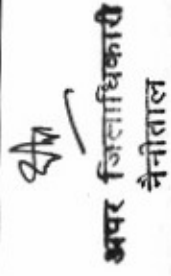 अपर जिलाधिकारी
नैनीताल